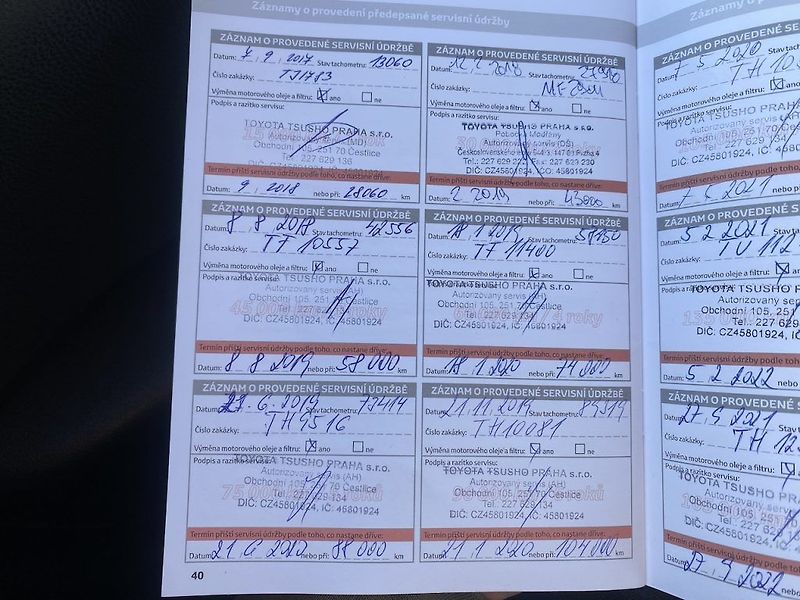 Záznamy o provedení předepsané servisní údržby
ZÁZNAM O PROVEDENÉ SERVISNÍ ÚDRŽBĚ
Datum: 7. 9. 2017 Stav tachometru: 13060
Číslo zakázky: TJ1783
Výměna motorového oleje a filtru: ano ne
Podpis a razítko servisu:
TOYOTA TSUSHO PRAHA s.r.o.
Autorizovaný servis (MD)
Obchodní 105, 251 70 Čestlice
Tel.: 227 629 136
Termín příští servisní údržby podle toho, co nastane dříve:
Datum: 9. 2018 nebo při: 28060 km
ZÁZNAM O PROVEDENÉ SERVISNÍ ÚDRŽBĚ
Datum: 12. 2. 2018 Stav tachometru:
Číslo zakázky:
Výměna motorového oleje a filtru: ano ne
Podpis a razítko servisu:
TOYOTA TSUSHO PRAHA s.r.o.
Pobočka Modřany
Autorizovaný servis (DS)
Tel.: 227 629 Fax: 227 629 230
DIČ: CZ45801924, IČ: 45801924
Termín příští servisní údržby podle toho, co nastane dříve:
Datum: 2. 2019 nebo při: 43000 km
ZÁZNAM O PROVEDENÉ SERVISNÍ ÚDRŽBĚ
Datum: 8 8 2018 Stav tachometru: 42556
Číslo zakázky: TF 10557
Výměna motorového oleje a filtru: ano ne
Podpis a razítko servisu:
TOYOTA TSUSHO PRAHA s.r.o.
Autorizovaný servis (AH)
Obchodní 105, 251 70 Čestlice
Tel.: 227 629 134
DIČ: CZ45801924, IČ: 45801924
Termín příští servisní údržby podle toho, co nastane dříve:
Datum: 8 8 2019 nebo při: 58 000 km
ZÁZNAM O PROVEDENÉ SERVISNÍ ÚDRŽBĚ
Datum: 18 1 2019 Stav tachometru: 58150
Číslo zakázky: TF 11400
Výměna motorového oleje a filtru: ano ne
Podpis a razítko servisu:
TOYOTA TSUSHO PRAHA s.r.o.
Autorizovaný servis (AH)
Obchodní 105, 251 70 Čestlice
Tel.: 227 629 134
DIČ: CZ45801924, IČ: 45801924
Termín příští servisní údržby podle toho, co nastane dříve:
Datum: 18 1 2020 nebo při: 74 000 km
ZÁZNAM O PROVEDENÉ SERVISNÍ ÚDRŽBĚ
Datum: 6. 2019 Stav tachometru: 73414
Číslo zakázky: TH 9516
Výměna motorového oleje a filtru: ano ne
Podpis a razítko servisu:
TOYOTA TSUSHO PRAHA s.r.o.
Autorizovaný servis (AH)
Obchodní 105, 251 70 Čestlice
Tel.: 227 629 134
DIČ: CZ45801924, IČ: 45801924
Termín příští servisní údržby podle toho, co nastane dříve:
Datum: 21 6 2020 nebo při: 88 000 km
ZÁZNAM O PROVEDENÉ SERVISNÍ ÚDRŽBĚ
Datum: 21. 11. 2019 Stav tachometru: 89319
Číslo zakázky: TH10081
Výměna motorového oleje a filtru: ano ne
Podpis a razítko servisu:
TOYOTA TSUSHO PRAHA s.r.o.
Autorizovaný servis (AH)
Obchodní 105, 251 70 Čestlice
Tel.: 227 629 134
DIČ: CZ45801924, IČ: 45801924
Termín příští servisní údržby podle toho, co nastane dříve:
Datum: 21 1 2020 nebo při: 104 000 km
40
Záznamy o
ZÁZNAM O PROVEDEN
5 2020
Číslo zakázky: TH
Výměna motorového oleje a filtru:
Podpis a razítko servisu:
TOYOTA TSUSHO PRAHA
Autorizovaný servis
Obchodní 105, 251 70
Tel.: 227 629
DIČ: CZ45801924, IČ:
Termín příští servisní údržby podle
5 2021
ZÁZNAM O PROVEDENÉ SE
Datum: 5 2 2021
Číslo zakázky: TU 112
Výměna motorového oleje a filtru:
Podpis a razítko servisu:
TOYOTA TSUSHO PRAHA
Autorizovaný servis
Obchodní 105, 251 70
Tel.: 227 629
DIČ: CZ45801924, IČ:
Termín příští servisní údržby podle toho
Datum: 5 2 2022 nebo
ZÁZNAM O PROVEDENÉ SE
Datum: 27 9 2021 Stav
Číslo zakázky: TH 12
Výměna motorového oleje a filtru:
Podpis a razítko servisu:
TOYOTA TSUSHO PRAHA
Autorizovaný servis
Obchodní 105, 251 70
Tel.: 227 629
DIČ: CZ45801924, IČ: 45
Termín příští servisní údržby podle toho
Datum: 27 9 2022 nebo